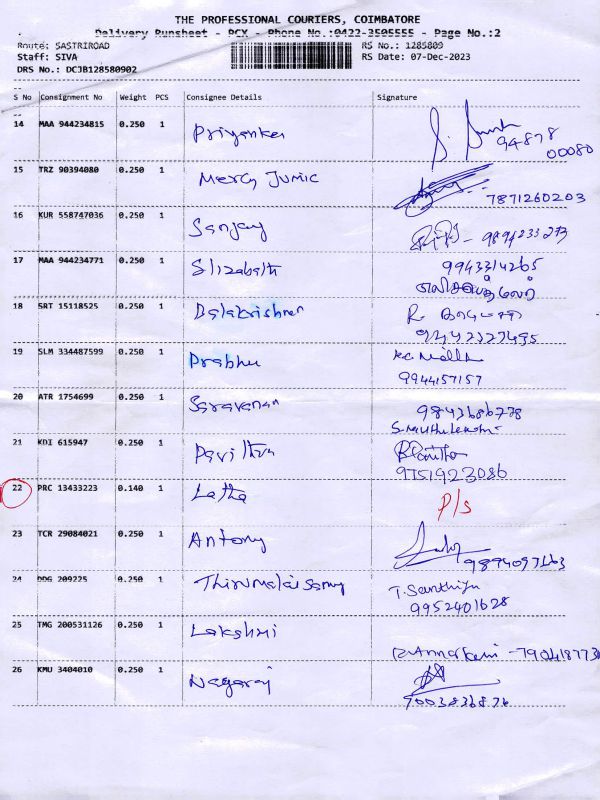 THE PROFESSIONAL COURIERS, COIMBATORE
Delivery Runsheet - PCX - Phone No.:0422-3505555 - Page No.:2
Route: SASTRIROAD RS No.: 1285809
Staff: SIVA RS Date: 07-Dec-2023
DRS No.: DCJB128580902
S No Consignment No Weight PCS Consignee Details Signature
14 MAA 944234815 0.250 1 Priyanka 94878
00080
15 TRZ 90394080 0.250 1 Mercy 7871260203
16 KUR 558747036 0.250 1 Sanjay
17 MAA 944234771 0.250 1 9943314265
18 SRT 15118525 0.250 1 Balakrishnan
19 SLM 334487599 0.250 1 Prabhu
9944157157
20 ATR 1754699 0.250 1 Saravanan 9843686778
S.Muthulakshmi
21 KDI 615947 0.250 1 Pavithra
9751923086
22 PRC 13433223 0.140 1 Latha P/s
23 TCR 29084021 0.250 1 Antony
24 DDG 209225 0.250 1 Thirumalaisamy
9952401628
25 TMG 200531126 0.250 1 Lakshmi
26 KMU 3404010 0.250 1 Nagaraj